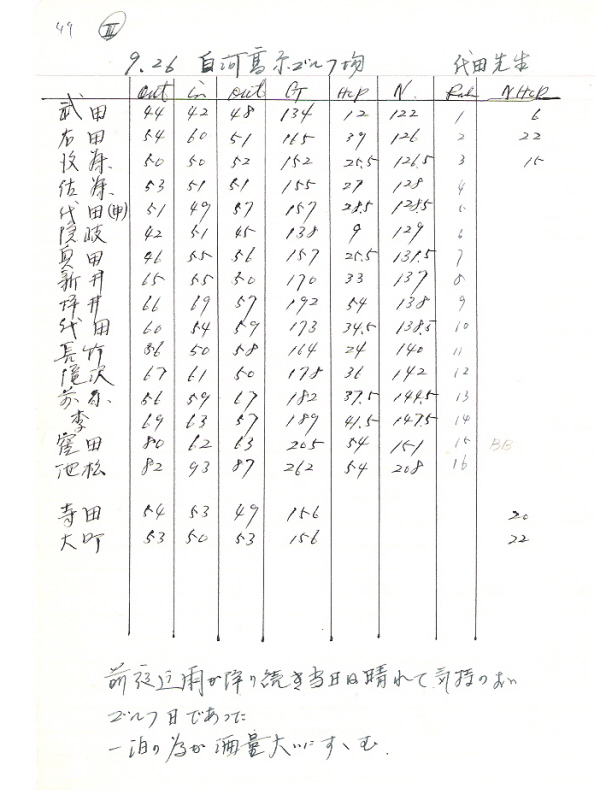 49 III
9.26 白河高原ゴルフ場 代田先生
out in out GT Hcp N. Rnk NHcp
武田 44 42 48 134 12 122 1 6
右田 54 60 51 165 39 126 2 22
牧原 50 50 52 152 25.5 126.5 3 15
佐藤 53 51 51 155 27 128 4
代田(申) 51 49 57 157 28.5 128.5 5
隠岐 42 51 45 138 9 129 6
真田 46 55 56 157 25.5 131.5 7
新井 65 55 50 170 33 137 8
坪井 66 69 57 192 54 138 9
代田 60 54 59 173 34.5 138.5 10
長竹 56 50 58 164 24 140 11
67 61 50 178 36 142 12
56 59 67 182 37.5 144.5 13
李 69 63 57 189 41.5 147.5 14
窪田 80 62 63 205 54 151 15 BB
池松 82 93 87 262 54 208 16
寺田 54 53 49 156 20
大町 53 50 53 156 22
前夜迄雨が降り続き当日は晴れて気持のよい
ゴルフ日であった
一泊の為か酒量大いにすゝむ.